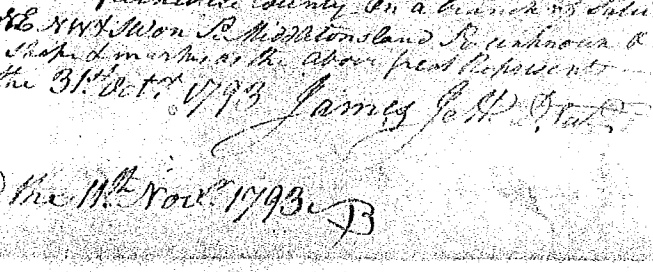 County on a branch of Salu
NE & NWt & SW on S. Middletons land SE unknown &
Shape & marks as the above plat Represents
the 31st Octr. 1793 James
the 11th Novr. 1793 B